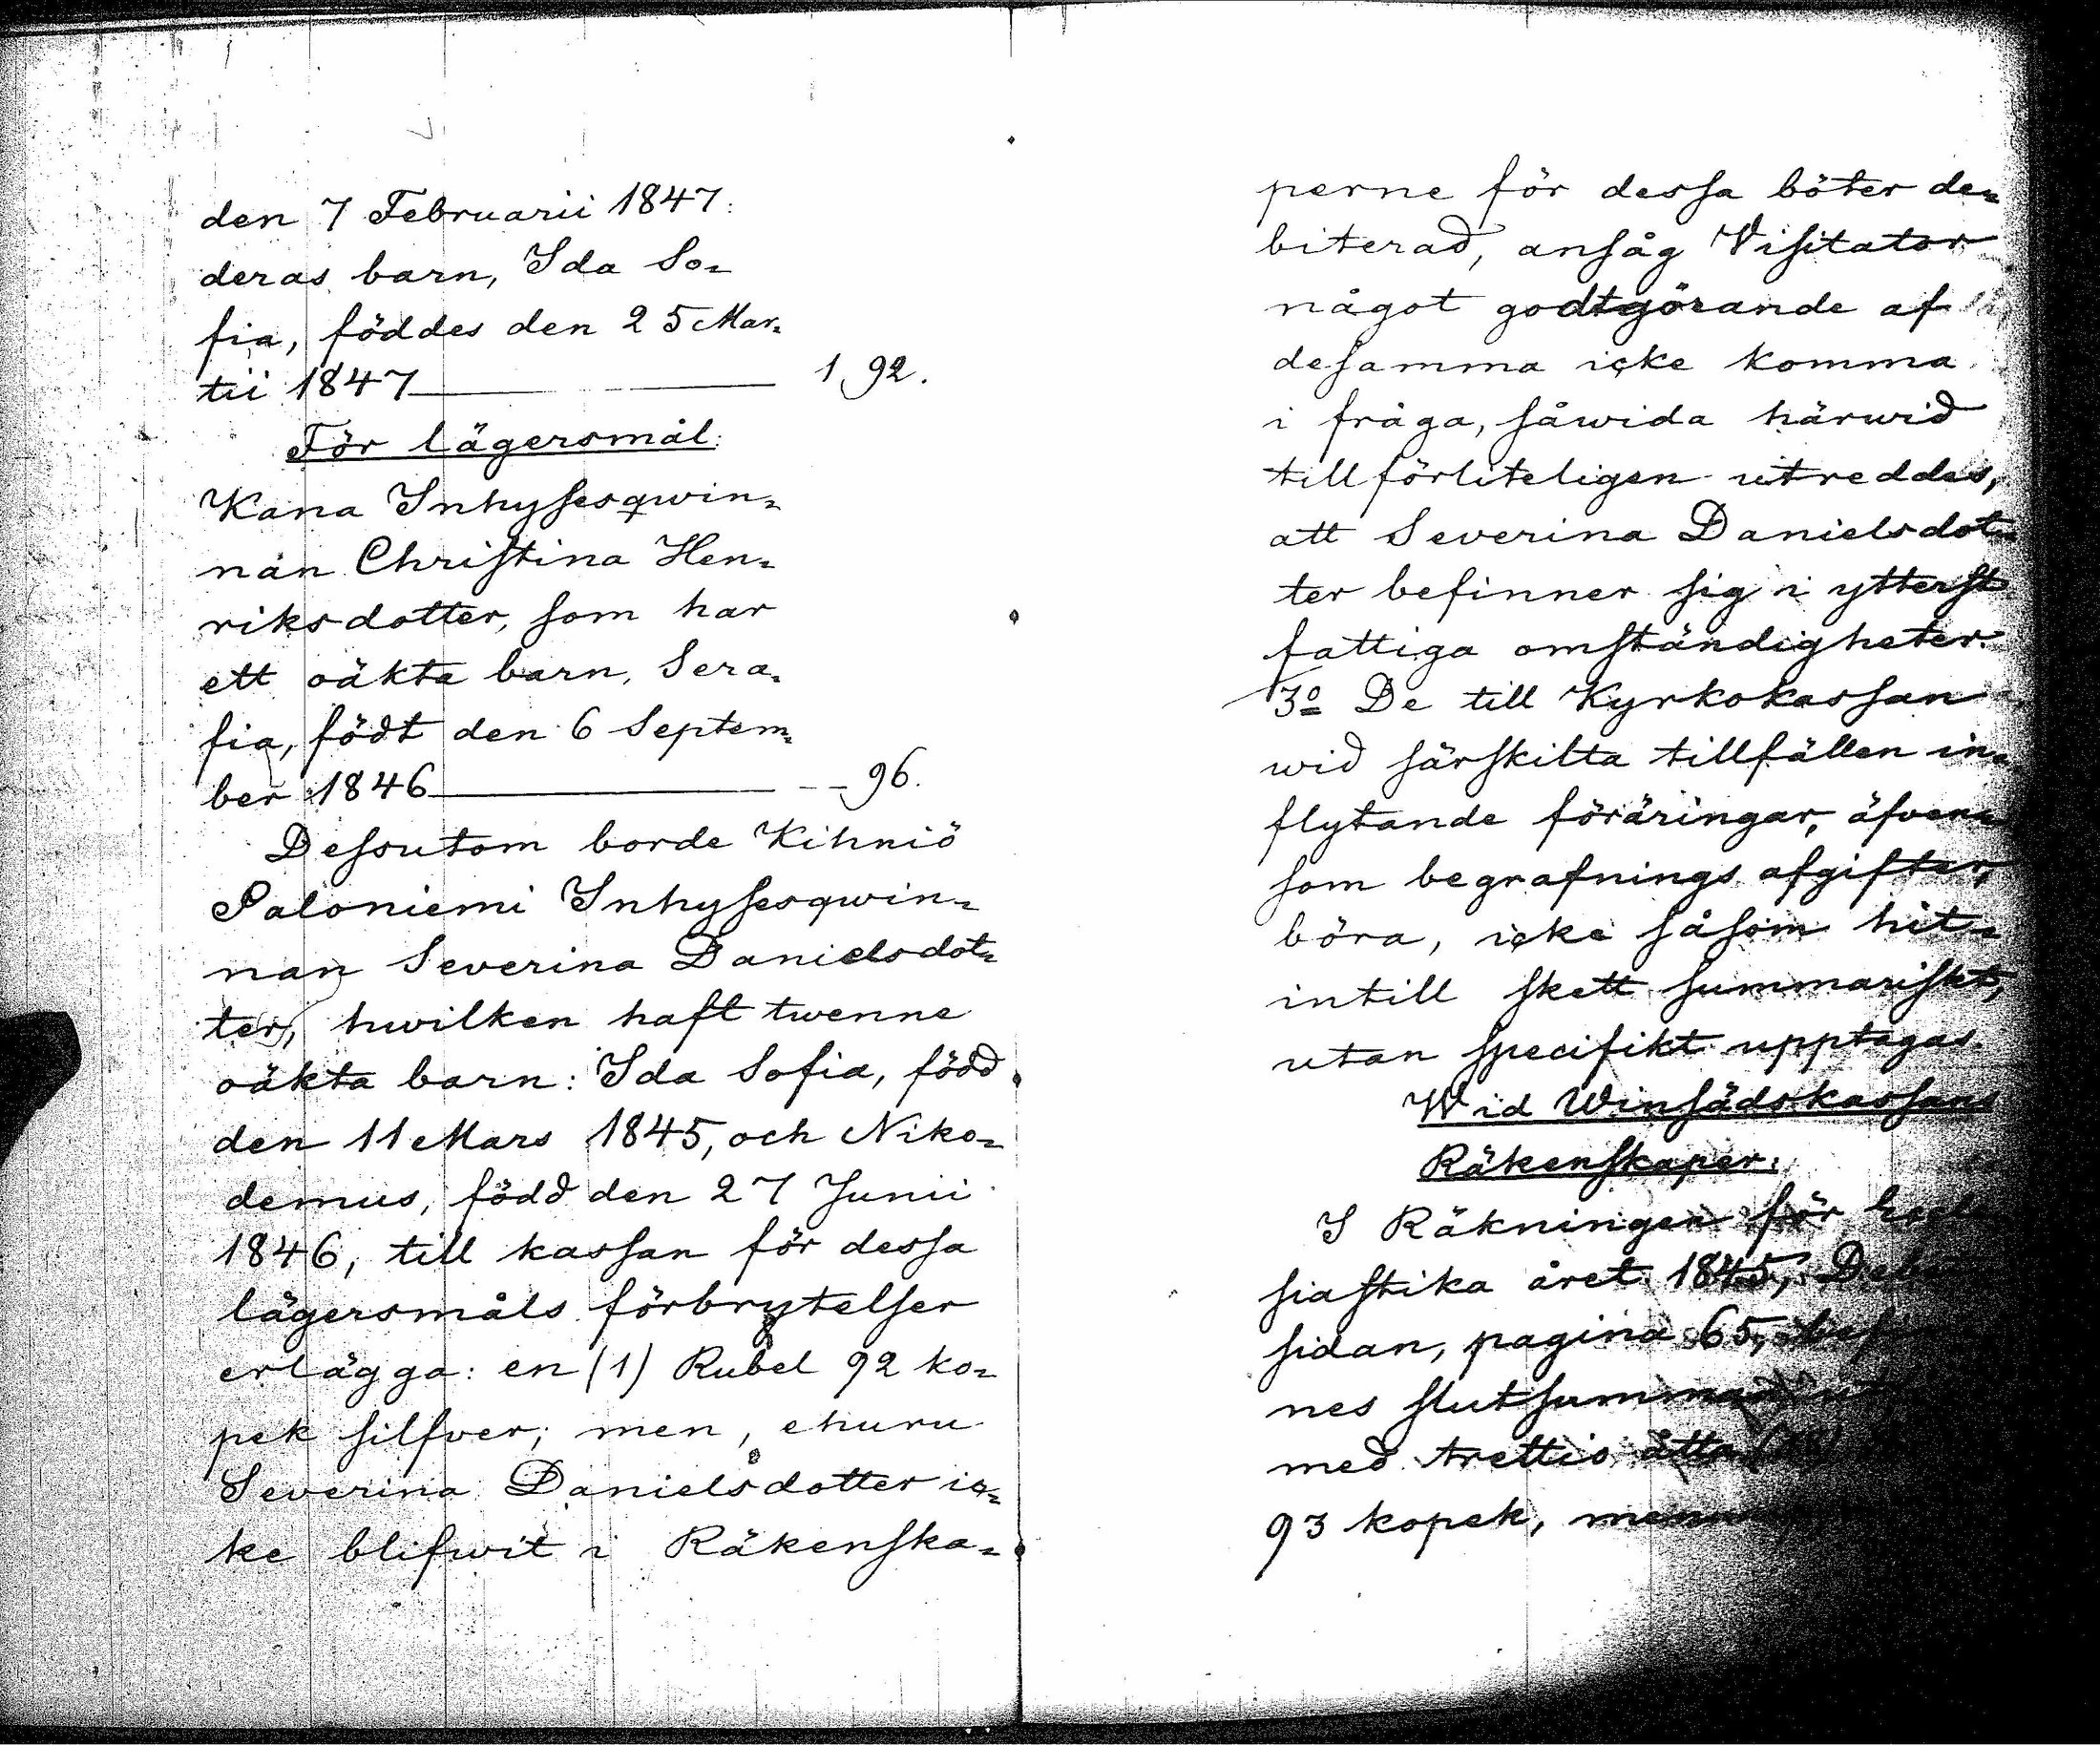 den 7 Februarii 1847:
deras barn, Ida So-
fia, föddes den 25 Mar-
tii 1847 1 92.
För lägersmål:
Kana Inhysesqwin-
nan Christina Hen-
riksdotter, som har
ett oäkta barn, Sera-
fia, födt den 6 Septem-
ber 1846 - - 96.
Dessutom borde Kihniö
Paloniemi Inhysesqwin-
nan Severina Danielsdot-
ter, hwilken haft twenne
oäkta barn: Ida Sofia, född
den 11 Mars 1845, och Niko-
demus, född den 27 Junii
1846, till kassan för dessa
lägersmåls förbrytelser
erlägga: en (1) Rubel 92 ko-
pek silfver; men, ehuru
Severina Danielsdotter ic-
ke blifwit i Räkenska-
perne för dessa böter de-
biterad, ansåg Visitator
något godtgörande af
desamma icke komma
i fråga, såwida härwid
tillförliteligen utreddes,
att Severina Danielsdot-
ter befinner sig i ytterst
fattiga omständigheter.
3o De till Kyrkokassan
wid särskilta tillfällen in-
flytande föräringar, äfven-
som begrafnings afgifter,
böra, icke såsom hit-
intill skett summariskt,
utan specifikt upptagas.
Wid Winsädskassans
Räkenskaper:
I Räkningen för
siastika året 1845,
sidan, pagina 65,
nes slutsumman
med trettio åtta
93 kopek,